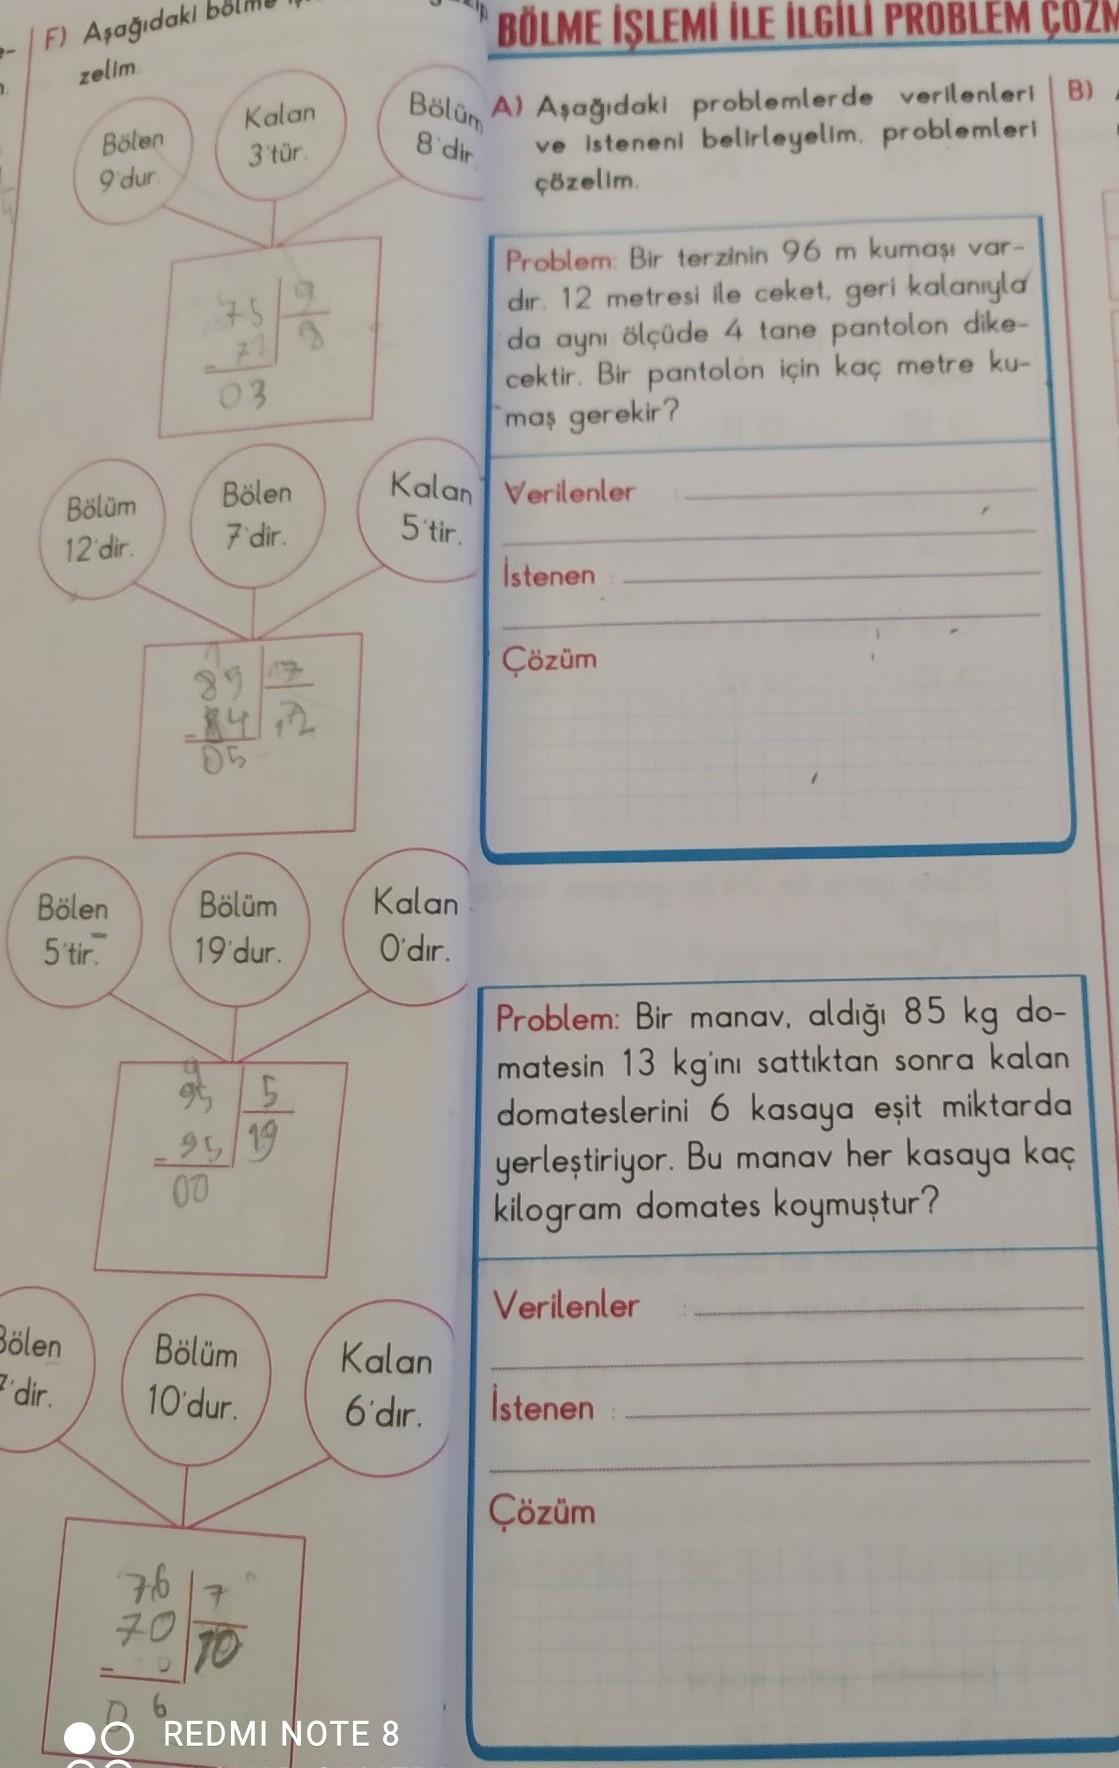 F) Aşağıdaki bölme
zelim.
Bölen
9'dur.
Kalan
3'tür.
Bölüm
8'dir.
75 9
72 8
03
Bölüm
12'dir.
Bölen
7'dir.
Kalan
5'tir.
89
84
05
Bölen
5'tir.
Bölüm
19'dur.
Kalan
0'dır.
95 5
95 19
00
Bölen
7'dir.
Bölüm
10'dur.
Kalan
6'dır.
76 7
70 10
0 6
BÖLME İŞLEMİ İLE İLGİLİ PROBLEM ÇÖZM
A) Aşağıdaki problemlerde verilenleri
ve isteneni belirleyelim, problemleri
çözelim.
Problem: Bir terzinin 96 m kumaşı var-
dır. 12 metresi ile ceket, geri kalanıyla
da aynı ölçüde 4 tane pantolon dike-
cektir. Bir pantolon için kaç metre ku-
maş gerekir?
Verilenler :
İstenen :
Çözüm
Problem: Bir manav, aldığı 85 kg do-
matesin 13 kg'ını sattıktan sonra kalan
domateslerini 6 kasaya eşit miktarda
yerleştiriyor. Bu manav her kasaya kaç
kilogram domates koymuştur?
Verilenler :
İstenen :
Çözüm
B)
REDMI NOTE 8